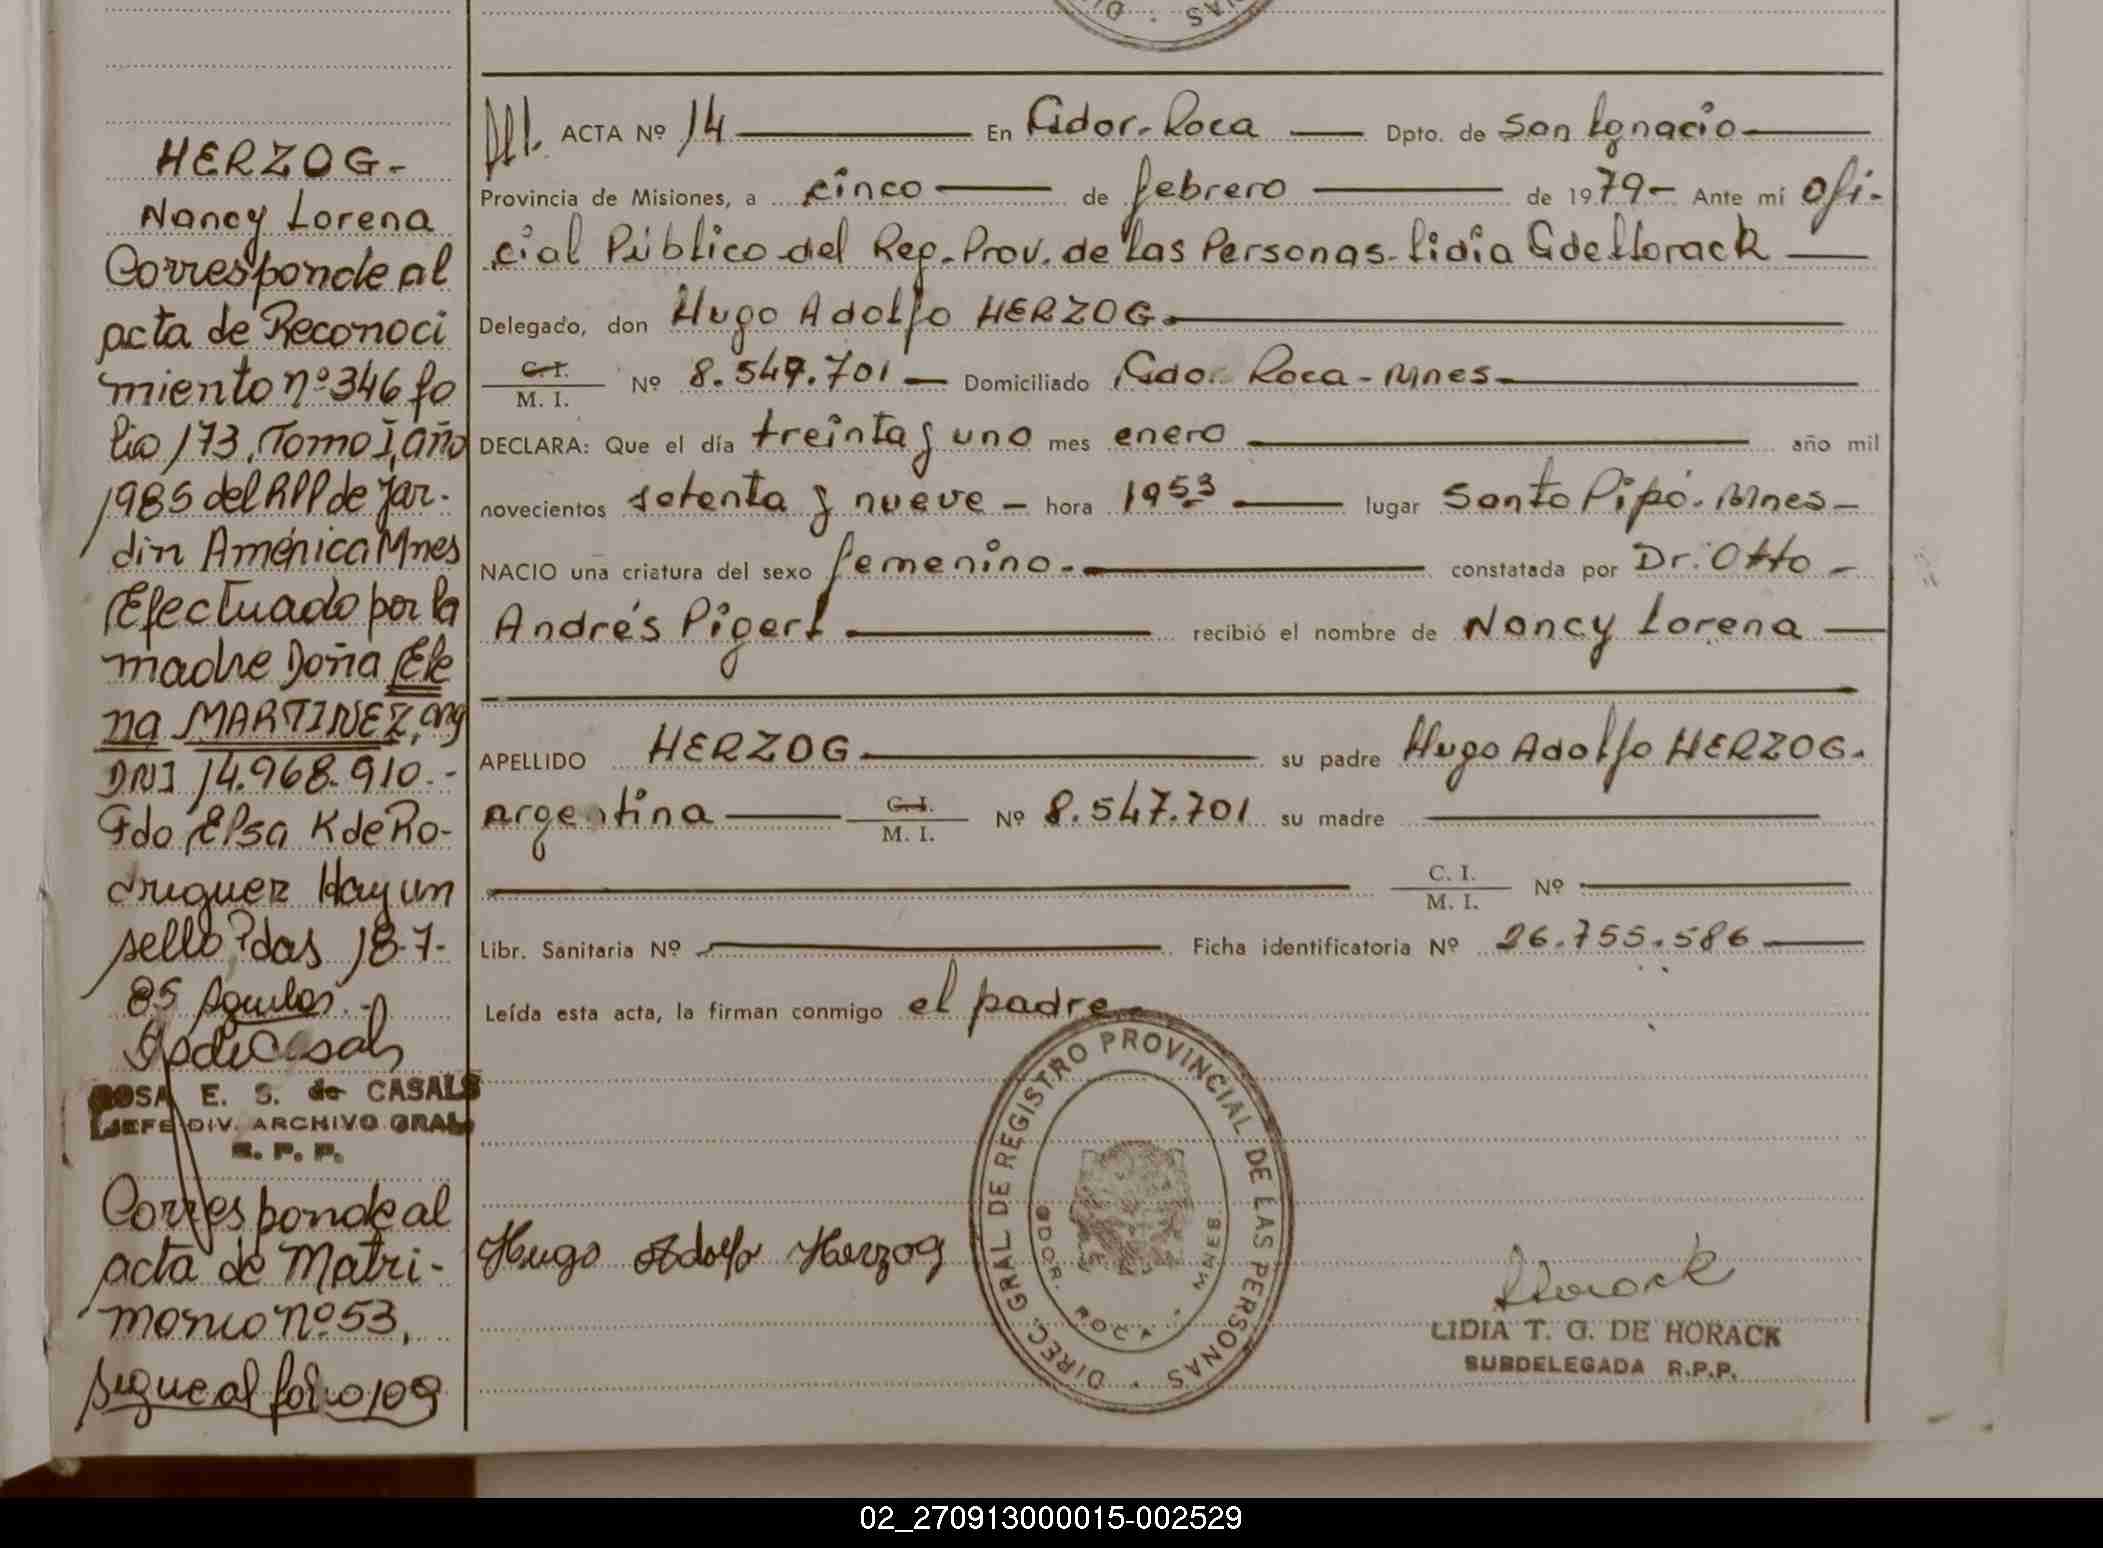 HERZOG-
Nancy Lorena
Corresponde al
acta de Reconoci
miento nº 346 fo
lio 173, Tomo I, año
1985 del RPP de Jar-
din América Mnes
Efectuado por la
madre Doña Ele
na MARTINEZ, arg
DNI 14.968.910.-
Fdo Elsa K de Ro-
driguez Hay un
sello Pdas 18-7-
85
ROSA E. S. de CASALS
JEFE DIV. ARCHIVO GRAL.
R. P. P.
Corresponde al
acta de Matri-
monio nº 53,
sigue al folio 109
ACTA Nº 14 En Gdor. Roca Dpto. de San Ignacio
Provincia de Misiones, a cinco de febrero de 1979- Ante mí Ofi-
cial Público del Reg. Prov. de las Personas. Lidia G de Horack
Delegado, don Hugo Adolfo HERZOG.
C. I.
M. I. Nº 8.547.701 Domiciliado Gdor. Roca - Mnes-
DECLARA: Que el día treinta y uno mes enero año mil
novecientos setenta y nueve - hora 1953 lugar Santo Pipó. Mnes-
NACIO una criatura del sexo femenino. constatada por Dr. Otto -
Andrés Pigerl recibió el nombre de Nancy Lorena
APELLIDO HERZOG su padre Hugo Adolfo HERZOG.
argentina C. I. M. I. Nº 8.547.701 su madre
C. I.
M. I. Nº
Libr. Sanitaria Nº Ficha identificatoria Nº 26.755.586
Leída esta acta, la firman conmigo el padre.
DIREC. GRAL DE REGISTRO PROVINCIAL DE LAS PERSONAS
GDOR. ROCA - MNES
Hugo Adolfo Herzog
Horack
LIDIA T. G. DE HORACK
SUBDELEGADA R.P.P.
02_270913000015-002529